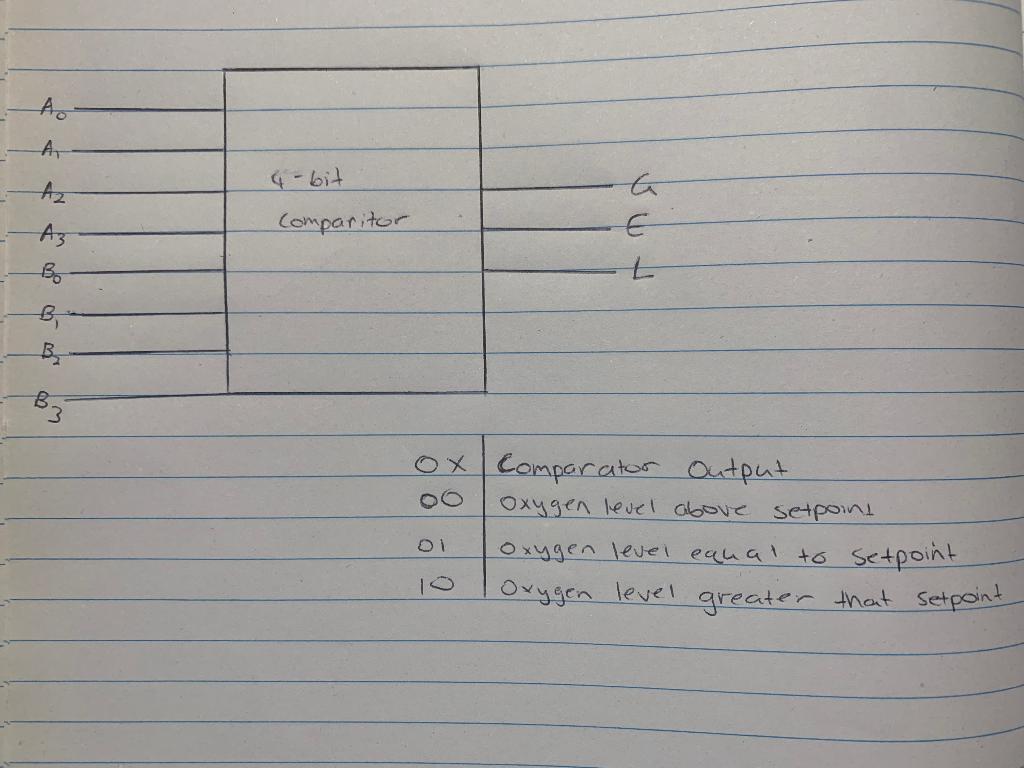 A₀
A₁
A₂
A₃
B₀
B₁
B₂
B₃
4-bit
Comparitor
G
E
L
OX Comparator Output
00 Oxygen level above setpoint
01 Oxygen level equal to setpoint
10 Oxygen level greater that setpoint